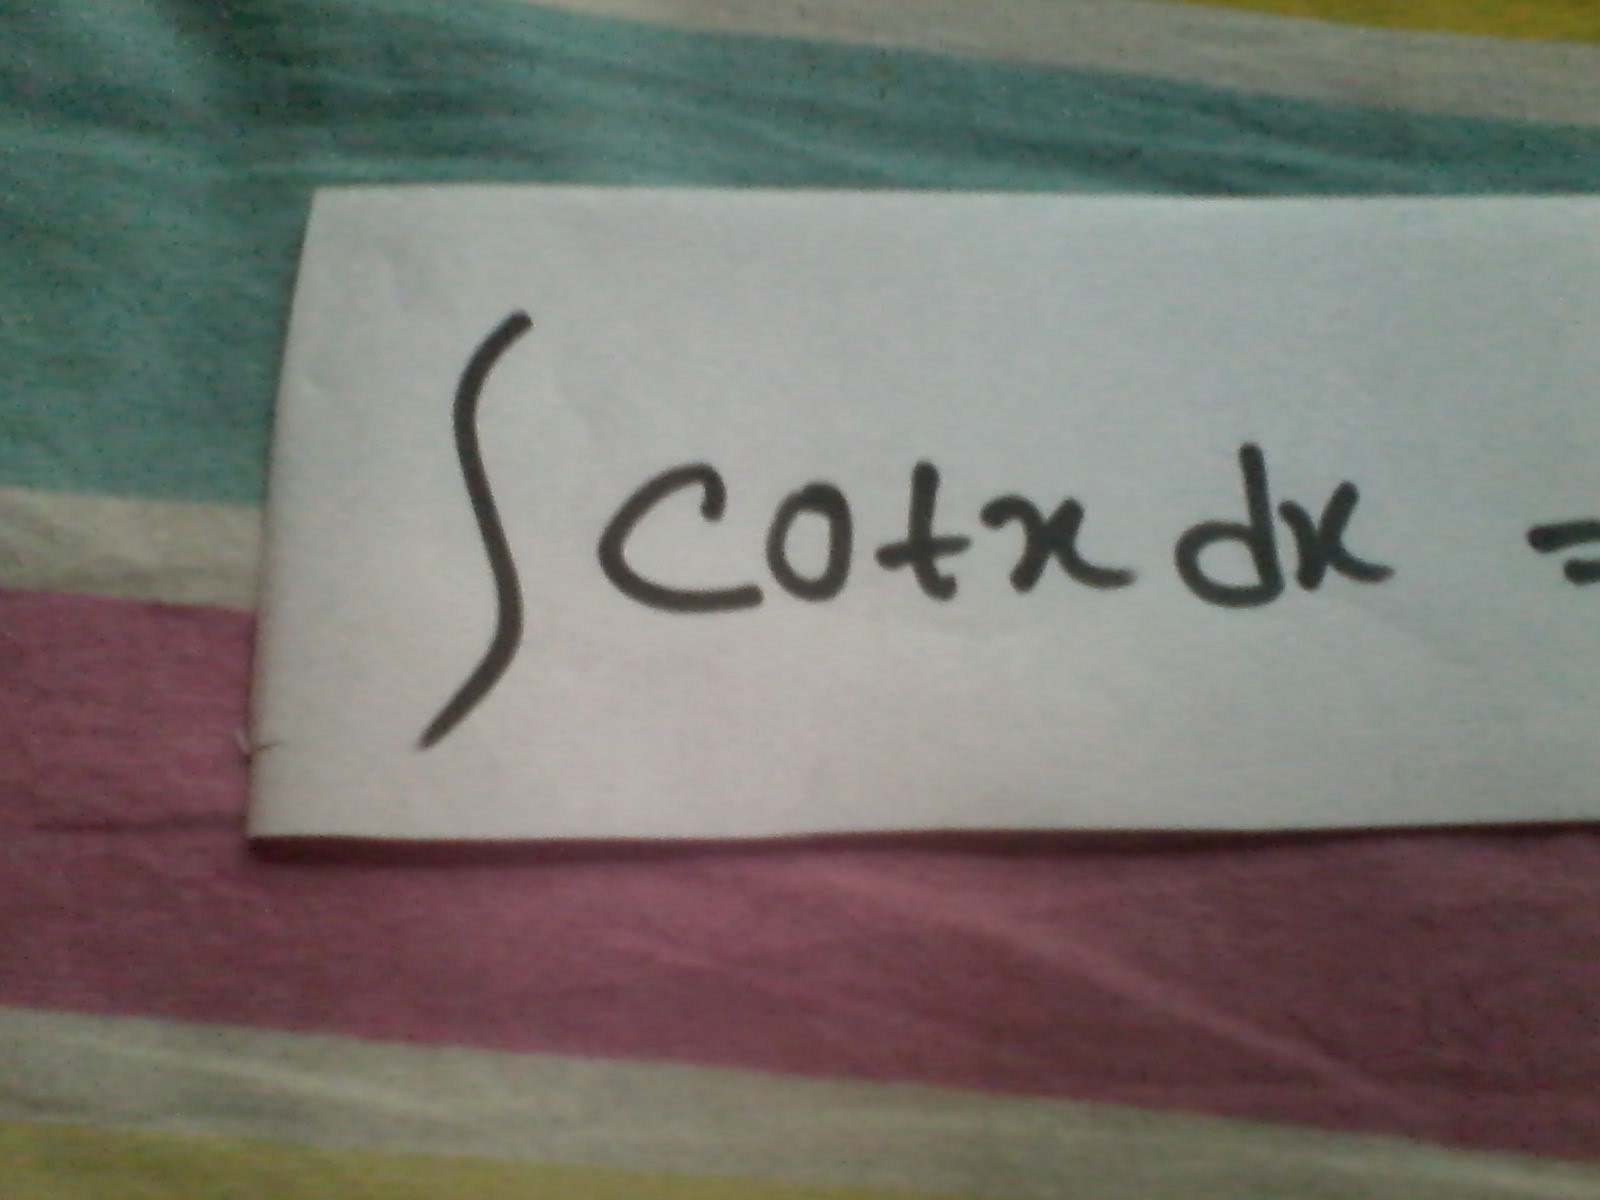 ∫ cotx dx =